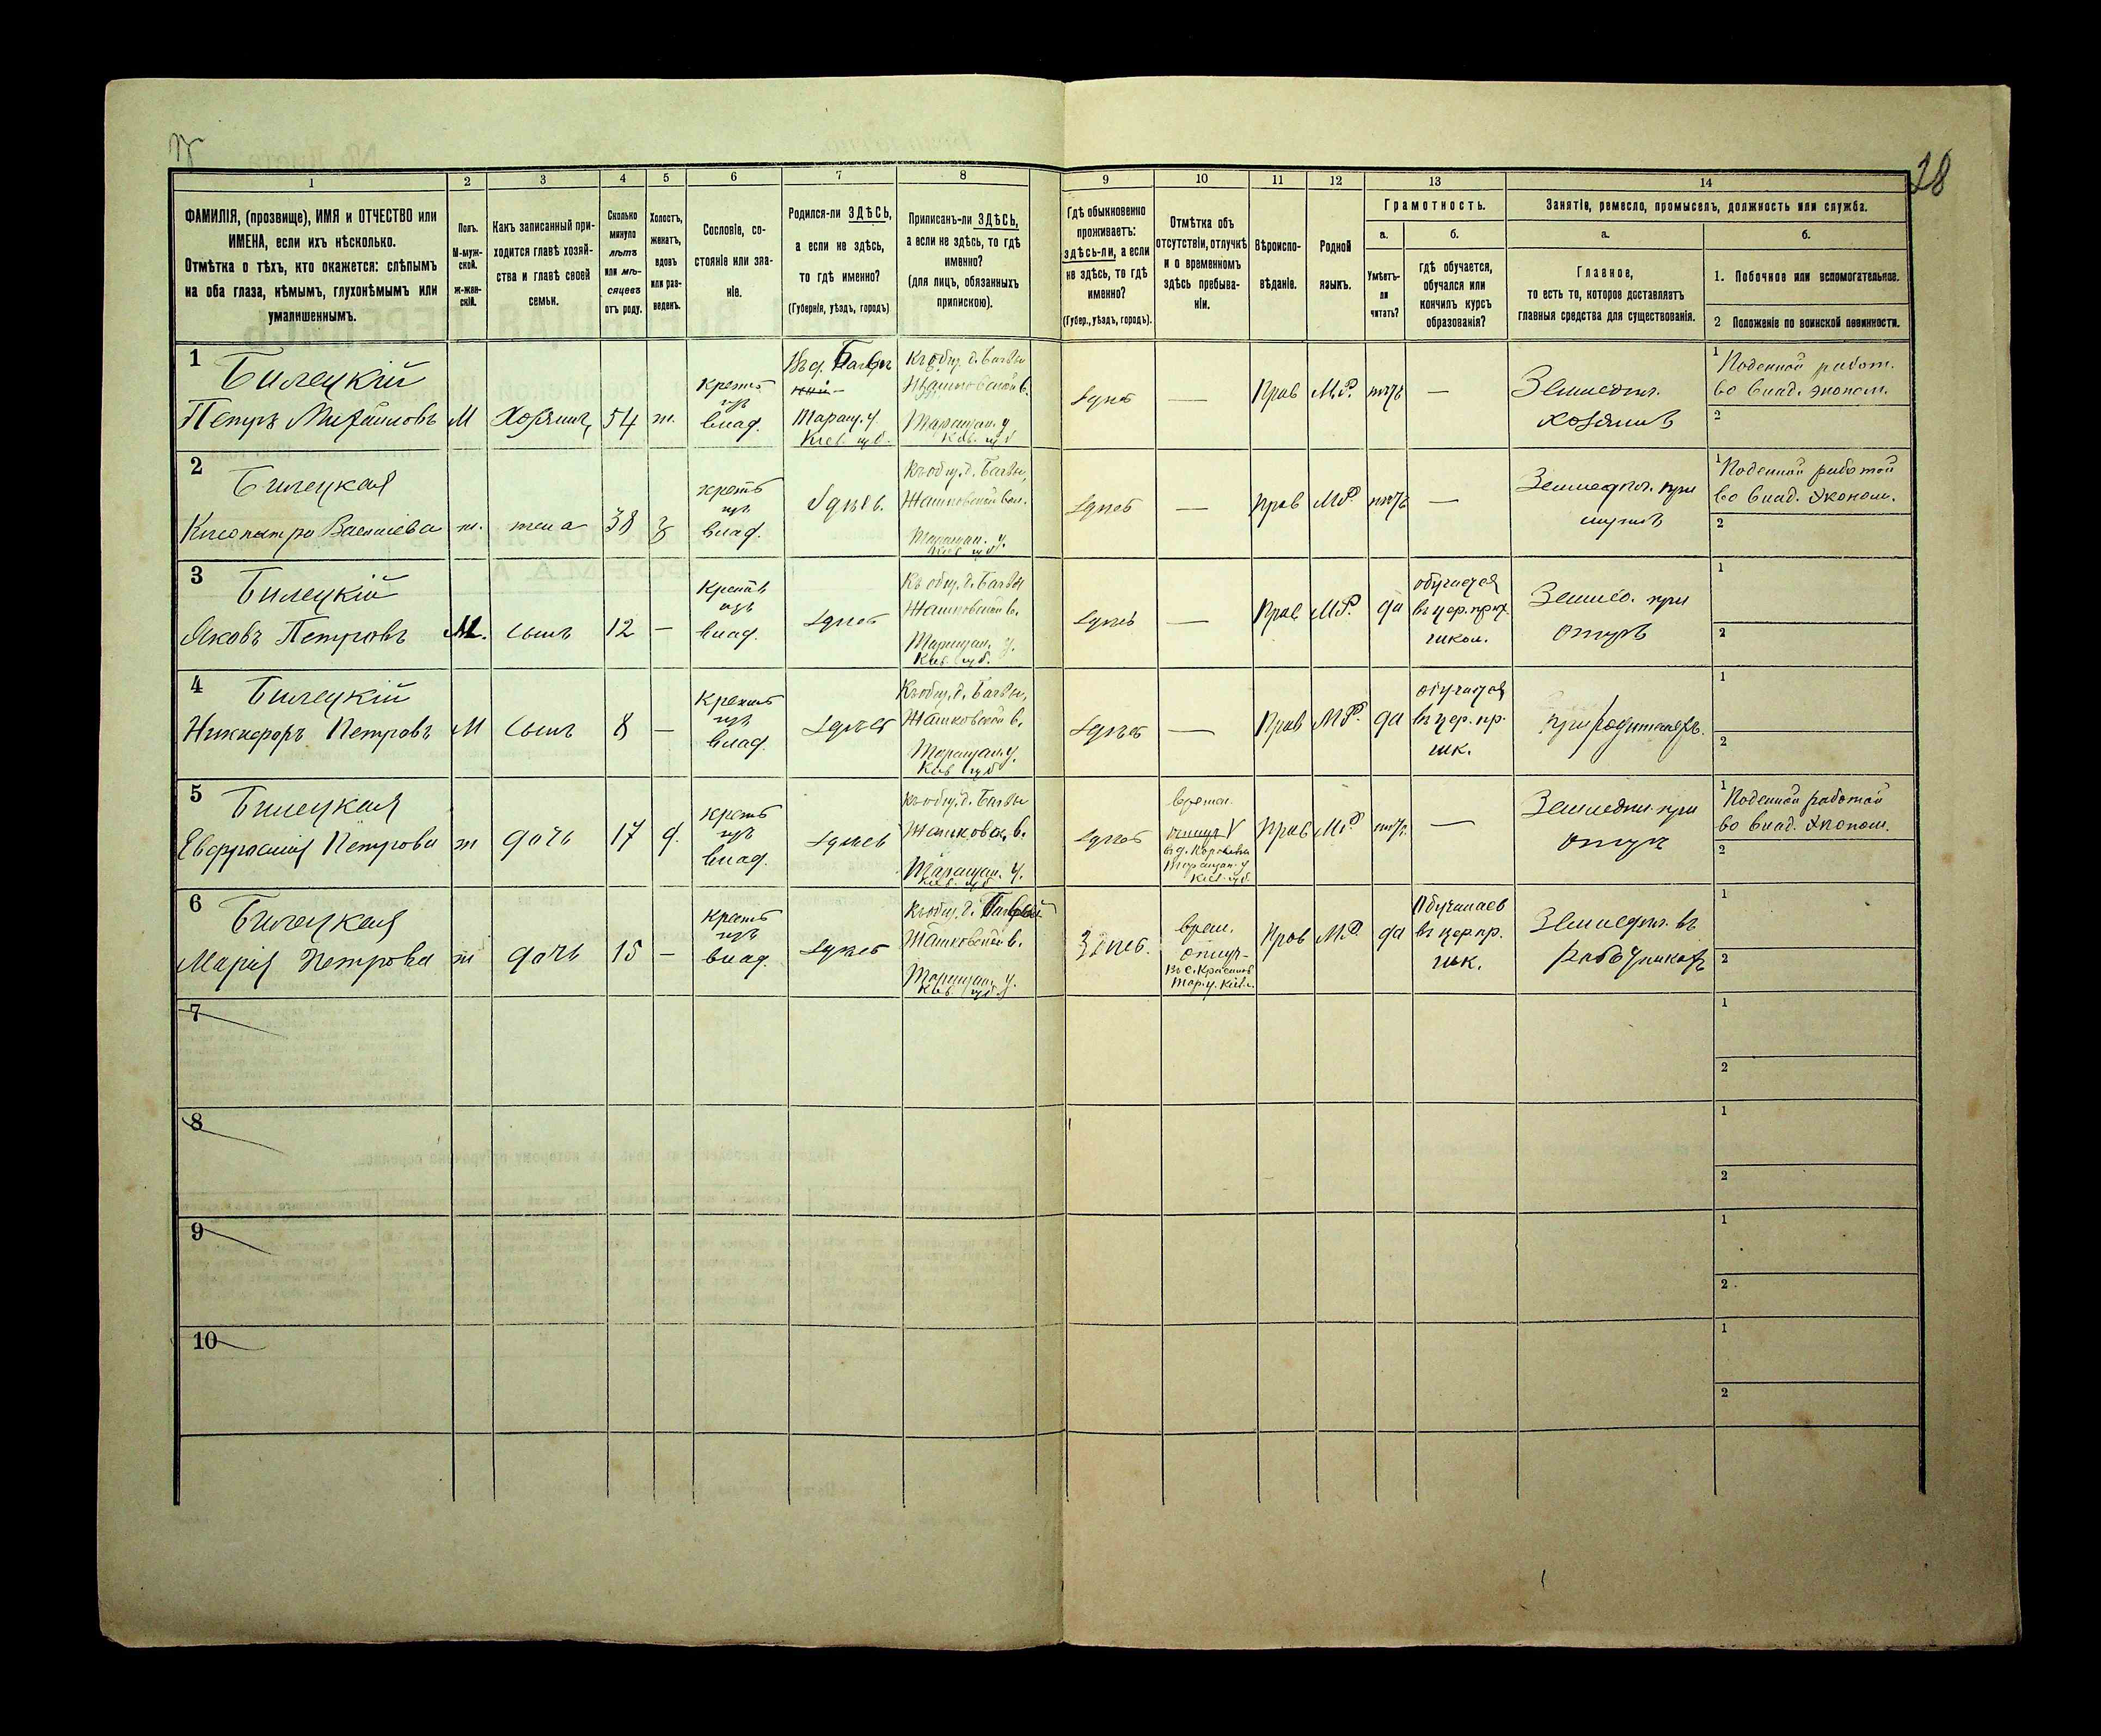 28
1 2 3 4 5 6 7 8 9 10 11 12 13 14
ФАМИЛІЯ, (прозвище), ИМЯ и ОТЧЕСТВО или
ИМЕНА, если ихъ нѣсколько.
Отмѣтка о тѣхъ, кто окажется: слѣпымъ
на оба глаза, нѣмымъ, глухонѣмымъ или
умалишеннымъ.
Полъ.
М-муж-
ской.
ж-жен-
скій.
Какъ записанный при-
ходится главѣ хозяй-
ства и главѣ своей
семьи.
Сколько
минуло
лѣтъ
или мѣ-
сяцевъ
отъ роду.
Холостъ,
женатъ,
вдовъ
или раз-
веденъ.
Сословіе, со-
стояніе или зва-
ніе.
Родился-ли ЗДѢСЬ,
а если не здѣсь,
то гдѣ именно?
(Губернія, уѣздъ, городъ)
Приписанъ-ли ЗДѢСЬ,
а если не здѣсь, то гдѣ
именно?
(для лицъ, обязанныхъ
припискою).
Гдѣ обыкновенно
проживаетъ:
здѣсь-ли, а если
не здѣсь, то гдѣ
именно?
(Губер., уѣздъ, городъ).
Отмѣтка объ
отсутствіи, отлучкѣ
и о временномъ
здѣсь пребыва-
ніи.
Вѣроиспо-
вѣданіе.
Родной
языкъ.
Грамотность.
а.
Умѣетъ-
ли
читать?
б.
гдѣ обучается,
обучался или
кончилъ курсъ
образованія?
Занятіе, ремесло, промыселъ, должность или служба.
а.
Главное,
то есть то, которое доставляетъ
главныя средства для существованія.
б.
1. Побочное или вспомогательное.
2 Положеніе по воинской повинности.
1
Билецкій
Петръ Михайловъ М Хозяинъ 54 ж.
крестъ
изъ
влад.
Таращ. у.
Кіев. губ.
Къ общ. д.
Жашковской в.
Таращан. у
Кіев. губ
здѣсь — Прав М.Р. нѣтъ —
Земледѣл.
хозяинъ
1 Поденной работ.
во влад. эконом.
2
2
Билецкая
Клеопатра Васильева ж. жена 38 з
крестъ
изъ
влад.
здѣсь.
Къ общ. д.
Жашковской вол.
Таращан. у.
Кіев. губ.
здѣсь — Прав М.Р. нѣтъ —
Земледѣл. при
мужѣ
1 Поденной работой
во влад. эконом.
2
3
Билецкій
Яковъ Петровъ М. сынъ 12 —
крестъ
изъ
влад.
здѣсь
Къ общ. д.
Жашковской в.
Таращан. у.
Кіев. губ.
здѣсь — Прав М.Р. да
обучается
въ цер. прих.
школ.
Землед. при
отцѣ
1
2
4
Билецкій
Никифоръ Петровъ М сынъ 8 —
крестъ
изъ
влад.
здѣсь
Къ общ. д.
Жашковской в.
Таращан. у.
Кіев. губ
здѣсь — Прав М.Р. да
обучается
въ цер. пр.
шк.
при родителяхъ.
1
2
5
Билецкая
Евфросинія Петрова ж дочь 17 д.
крестъ
изъ
влад.
здѣсь
Къ общ. д.
Жашковск. в.
Таращан. у.
Кіев. губ
здѣсь
времен.
отлуч
Таращан. у
Кіев. губ.
Прав М.Р. нѣтъ —
Земледѣл. при
отцѣ
1 Поденной работой
во влад. эконом.
2
6
Билецкая
Марія Петрова ж дочь 15 —
крестъ
изъ
влад.
здѣсь
Къ общ. д.
Жашковской в.
Таращан. у.
Кіев. губ.
здѣсь.
врем.
отлуч-
Тар. у. Кіев.
Прав М.Р. да
Обучалась
въ цер пр.
шк.
Земледѣл. въ
работникахъ
1
2
7
1
2
8
1
2
9
1
2
10
1
2